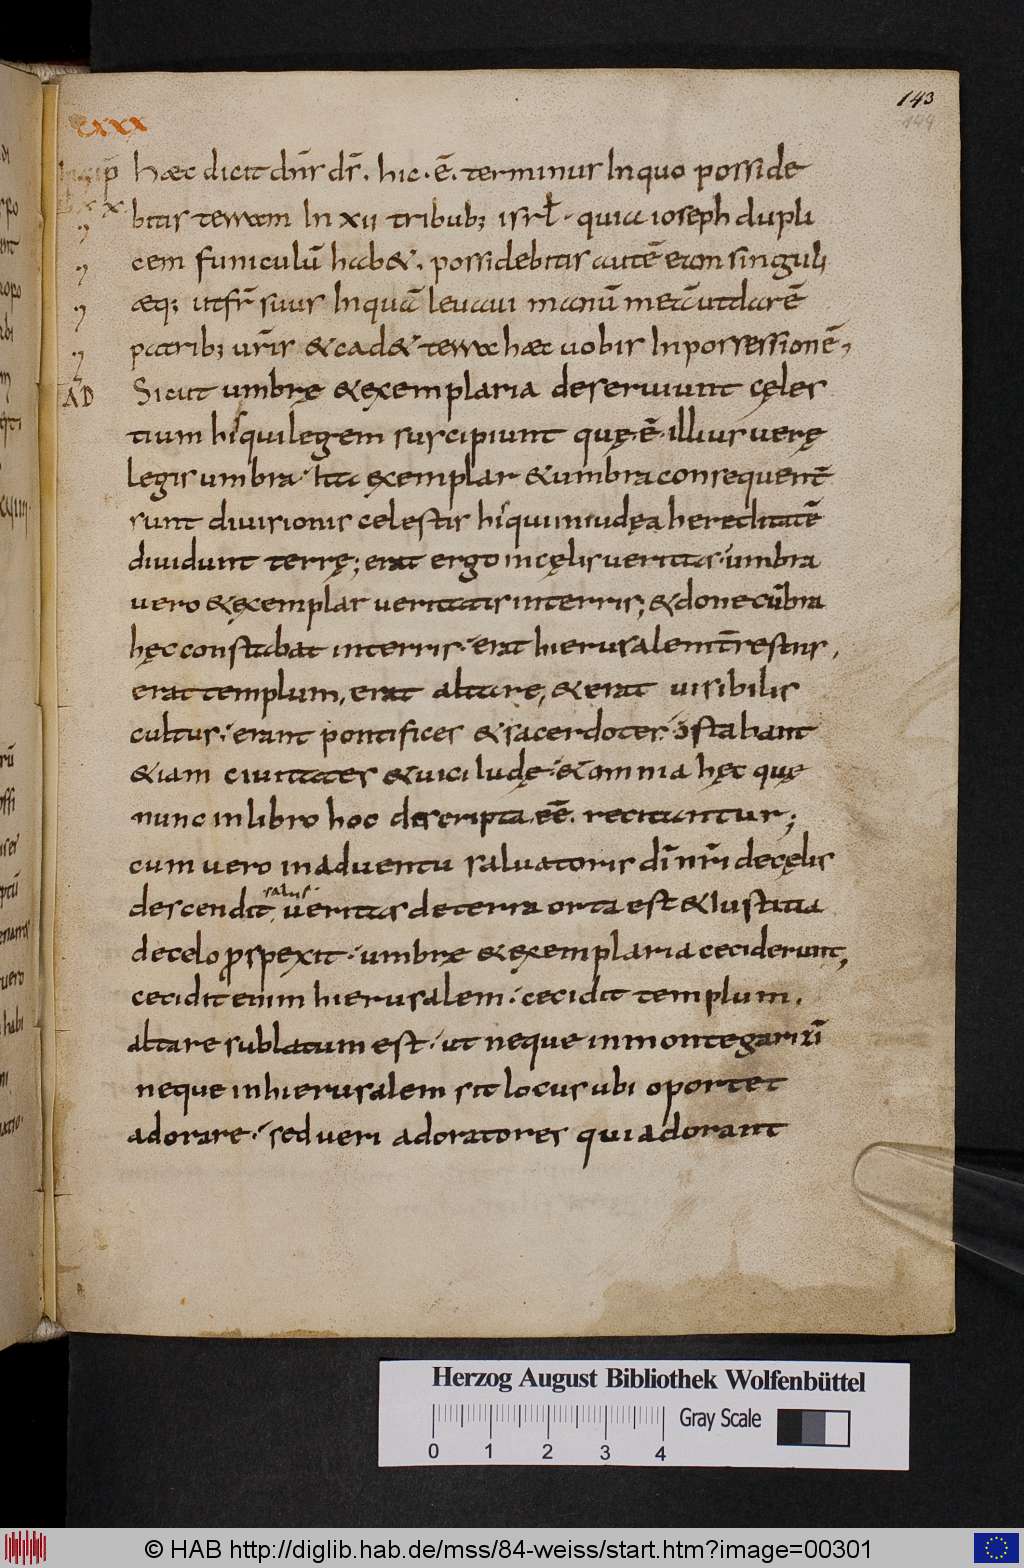 143
144
cxxx
Hæc dicit dn̄s ds̄. hic. ē. terminus In quo posside
bitis terram In xii tribub; isrl̄. quia ioseph dupli
cem funiculū hab&. possidebitis autē eam singuli
æq; ut fr̄ suus In quā leuaui manū meā ut darē
patrib; ur̄is & cad& terra hæc uobis In possessionē,
AD Sicut umbrę & exemplaria deseruiunt cęles
tium hi qui legem suscipiunt quę. ē. illius uerę
legis umbra. Ita exemplar & umbra consequent̄
sunt diuisionis celestis hi qui in iudęa hereditatē
diuidunt terrę; erat ergo in cęlis ueritas. umbra
uero & exemplar ueritatis in terris; & donec ūbra
hęc constabat in terris. erat hierusalem t̄restris,
erat templum, erat altare, & erat uisibilis
cultus. erant pontifices & sacerdotes.
&iam ciuitates & uici Iudę. & omnia hęc quę
nunc in libro hoc descripta. eē. recitantur;
cum uero in aduentu saluatoris dī nr̄i de cęlis
descendit, ueritas de terra orta est & Iustitia
de celo ꝓspexit. umbrę & exemplaria ceciderunt,
cecidit enim hierusalem. cecidit templum.
altare sublatum est. ut neque in monte garizī
neque in hierusalem sit locus ubi oportet
adorare. sed ueri adoratores qui adorant
Herzog August Bibliothek Wolfenbüttel
Gray Scale
0 1 2 3 4
© HAB http://diglib.hab.de/mss/84-weiss/start.htm?image=00301